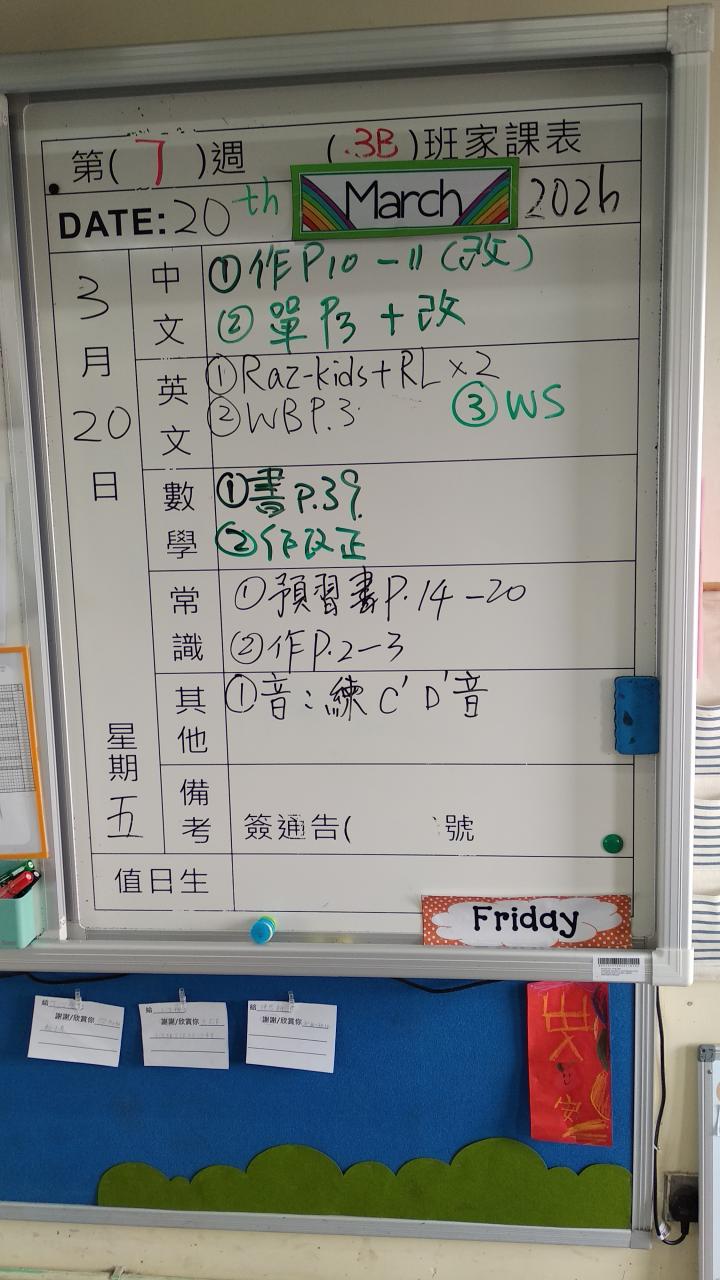 第(7)週 (3B)班家課表
DATE: 20th March 2026
3月20日 星期五
中文 ①作P10-11(改)
②單P3+改
英文 ①Raz-kids+RL×2
②WBP.3 ③WS
數學 ①書P.39
②作改正
常識 ①預習書P.14-20
②作P.2-3
其他 ①音:練C'D'音
備考 簽通告( 號
值日生
Friday
給
謝謝/欣賞你
給
謝謝/欣賞你
給
謝謝/欣賞你
安